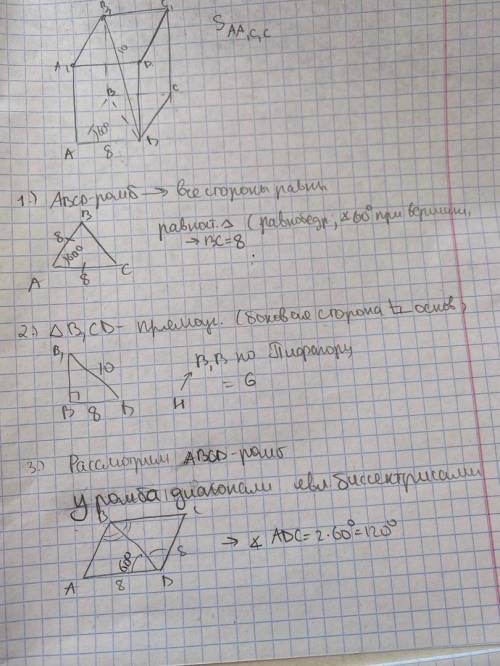 B₁ C₁
S AA₁C₁C
10
A₁ D₁
B C
60°
A 8 D
1.) ABCD-ромб → все стороны равны
B
равност. Δ (равнобедр, ∡60° при вершине,
8 → BC=8
60°
A 8 C
2.) Δ B₁CD - прямоуг. (боковая сторона ⊥ основ)
B₁
10 B₁B по Пифагору
= 6
B 8 D H
3.) Рассмотрим ABCD-ромб
У ромба диагонали явл биссектрисами
B C
60° 8 → ∡ ADC = 2·60° = 120°
A 8 D